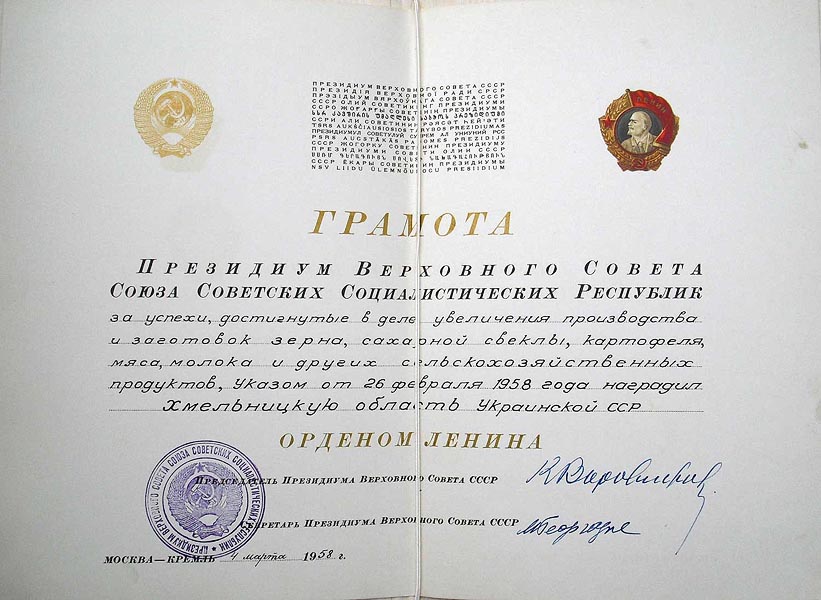 ПРЕЗИДИУМ ВЕРХОВНОГО СОВЕТА СССР
ПРЕЗИДІЯ ВЕРХОВНОЇ РАДИ СРСР
ПРЭЗІДЫУМ ВЯРХОЎНАГА САВЕТА СССР
СССР ОЛИЙ СОВЕТИНИНГ ПРЕЗИДИУМИ
ССРО ЖОҒАРҒЫ СОВЕТІНІҢ ПРЕЗИДИУМЫ
TSRS AUKŠČIAUSIOSIOS TARYBOS PREZIDIUMAS
ПРЕЗИДИУМУЛ СОВЕТУЛУЙ СУПРЕМ АЛ УНИУНИЙ РСС
PSRS AUGSTĀKĀS PADOMES PREZIDIJS
СССР ЖОГОРКУ СОВЕТИНИН ПРЕЗИДИУМУ
ПРЕЗИДИУМИ СОВЕТИ ОЛИИ СССР
СССР ЁКАРЫ СОВЕТИНИҢ ПРЕЗИДИУМЫ
NSV LIIDU ÜLEMNÕUKOGU PRESIIDIUM
ЛЕНИН
ГРАМОТА
ПРЕЗИДИУМ ВЕРХОВНОГО СОВЕТА
СОЮЗА СОВЕТСКИХ СОЦИАЛИСТИЧЕСКИХ РЕСПУБЛИК
за успехи, достигнутые в деле увеличения производства
и заготовок зерна, сахарной свеклы, картофеля,
мяса, молока и других сельскохозяйственных
продуктов, Указом от 26 февраля 1958 года наградил
Хмельницкую область Украинской ССР
ОРДЕНОМ ЛЕНИНА
ПРЕДСЕДАТЕЛЬ ПРЕЗИДИУМА ВЕРХОВНОГО СОВЕТА СССР
К Ворошилов
СЕКРЕТАРЬ ПРЕЗИДИУМА ВЕРХОВНОГО СОВЕТА СССР
М Георгадзе
ПРЕЗИДИУМ ВЕРХОВНОГО СОВЕТА СОЮЗА СОВЕТСКИХ СОЦИАЛИСТИЧЕСКИХ РЕСПУБЛИК
МОСКВА—КРЕМЛЬ 4 марта 1958 г.